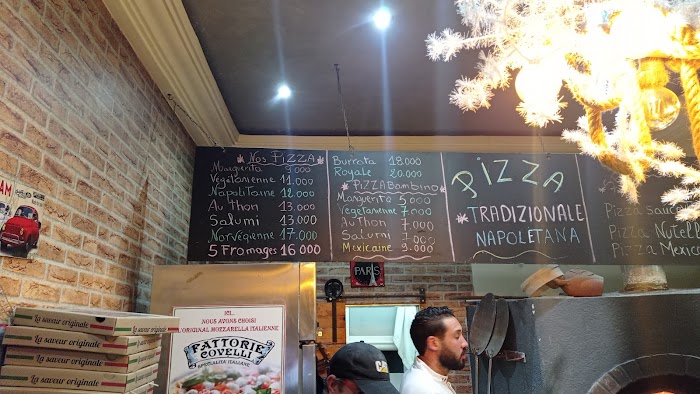 Nos Pizza
Margerita 9.000
Végétarienne 11.000
Napolitaine 12.000
Au Thon 13.000
Salumi 13.000
Norvégienne 17.000
5 Fromages 16 000
Burrata 18.000
Royale 20.000
Pizza Bambino
Margherita 5 000
Végétarienne 7 000
Au Thon 7 000
Salumi 7 000
Mexicaine 9.000
Pizza
TRADIZIONALE
NAPOLETANA
Pizza
Pizza Nutell
Pizza Mexic
PARIS
AM
La saveur originale
La saveur originale
La saveur originale
La saveur originale
La saveur originale
ICI...
NOUS AVONS CHOISI
L'ORIGINAL MOZZARELLA ITALIENNE
FATTORIE
COVELLI
SPECIALITÀ ITALIANE
CAT